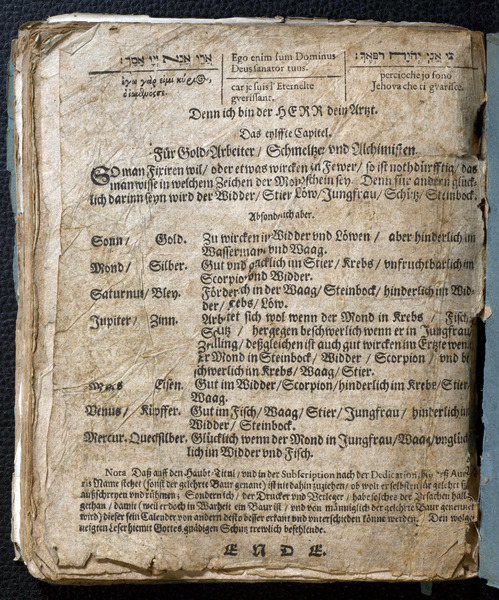 כי אני יהוה רפאך:
Ego enim sum Dominus
Deus sanator tuus.
ἐγὼ γάρ εἰμι κύριος,
car je suis l'Eternel te
gverissant.
percioche jo sono
Jehova che ti gvarisce.
Denn ich bin der HERR dein Artzt.
Das eylffte Capitel.
Für Gold-Arbeiter / Schmeltzer vnd Alchimisten.
SO man Fixiren wil / oder etwas wircken zu Fewer / so ist nothdürfftig / das
man wisse in welchem Zeichen der Mondschein sey. Denn für andern glück-
lich darinn seyn wird der Widder / Stier Löw / Jungfrau / Schütz / Steinbock.
Absonderlich aber.
Sonn / Gold. Zu wircken in Widder vnd Löwen / aber hinderlich im
Wasserman vnd Waag.
Mond / Silber. Gut vnd glücklich im Stier / Krebs / vnfruchtbarlich im
Scorpio vnd Widder.
Saturnus / Bley. Förderlich in der Waag / Steinbock / hinderlich im Wid-
der / Krebs / Löw.
Jupiter / Zinn. Arbeitet sich wol wenn der Mond in Krebs / Fisch
Schütz / hergegen beschwerlich wenn er in Jungfrau /
Zwilling / deßgleichen ist auch gut wircken im Ertzte wenn
Er Mond in Steinbock / Widder / Scorpion / vnd be
schwerlich im Krebs / Waag / Stier.
Mars Eisen. Gut im Widder / Scorpion / hinderlich im Krebs / Stier
Waag.
Venus / Küpffer. Gut im Fisch / Waag / Stier / Jungfrau / hinderlich im
Widder / Steinbock.
Mercur. Quecksilber. Glücklich wenn der Mond in Jungfrau / Waag / vnglück-
lich im Widder vnd Fisch.
Nota Daß auff den Haubt-Titul / vnd in der Subscription nach der Dedication, Auto-
ris Name stehet (sonst der gelehrte Baur genant) ist nit dahin zuziehen / ob wolt er selbsten sich gelehrt
außschreyen vnd rühmen; Sondern ich / der Drucker vnd Verleger / habe solches der Vrsachen halb
gethan / damit (weil er doch in Warheit ein Baur ist / vnd von männiglich der gelehrte Baur genennet
wird) dieser sein Calender von andern desto besser erkant vnd vnterschieden könne werden. Den wolge-
neigten Leser hiemit Gottes gnädigen Schutz trewlich befehlende.
ENDE.